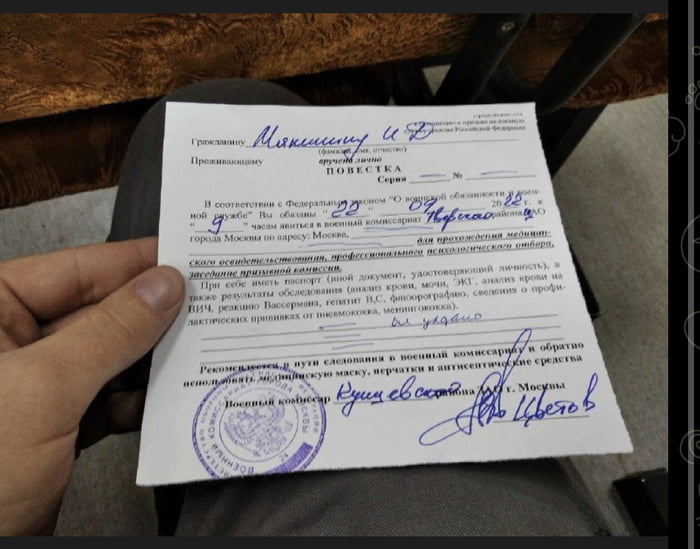 граждан Российской Федерации
Гражданину Мякшину И Д
(фамилия, имя, отчество)
Проживающему вручена лично
ПОВЕСТКА
Серия № 
В соответствии с Федеральным законом "О воинской обязанности и воен-
ной службе" Вы обязаны "22" 09 2022 г. к
"9" часам явиться в военный комиссариат Тверского района ЦАО
города Москвы по адресу: Москва, для прохождения медицин-
ского освидетельствования, профессионального психологического отбора,
заседание призывной комиссии.
При себе иметь паспорт (иной документ, удостоверяющий личность), а
также результаты обследования (анализ крови, мочи, ЭКГ, анализ крови на
ВИЧ, реакцию Вассермана, гепатит В,С, флюорографию, сведения о профи-
лактических прививках от пневмококка, менингококка).
Рекомендуется в пути следования в военный комиссариат и обратно
использовать медицинскую маску, перчатки и антисептические средства
Военный комиссар района ЗАО г. Москвы
Цветов